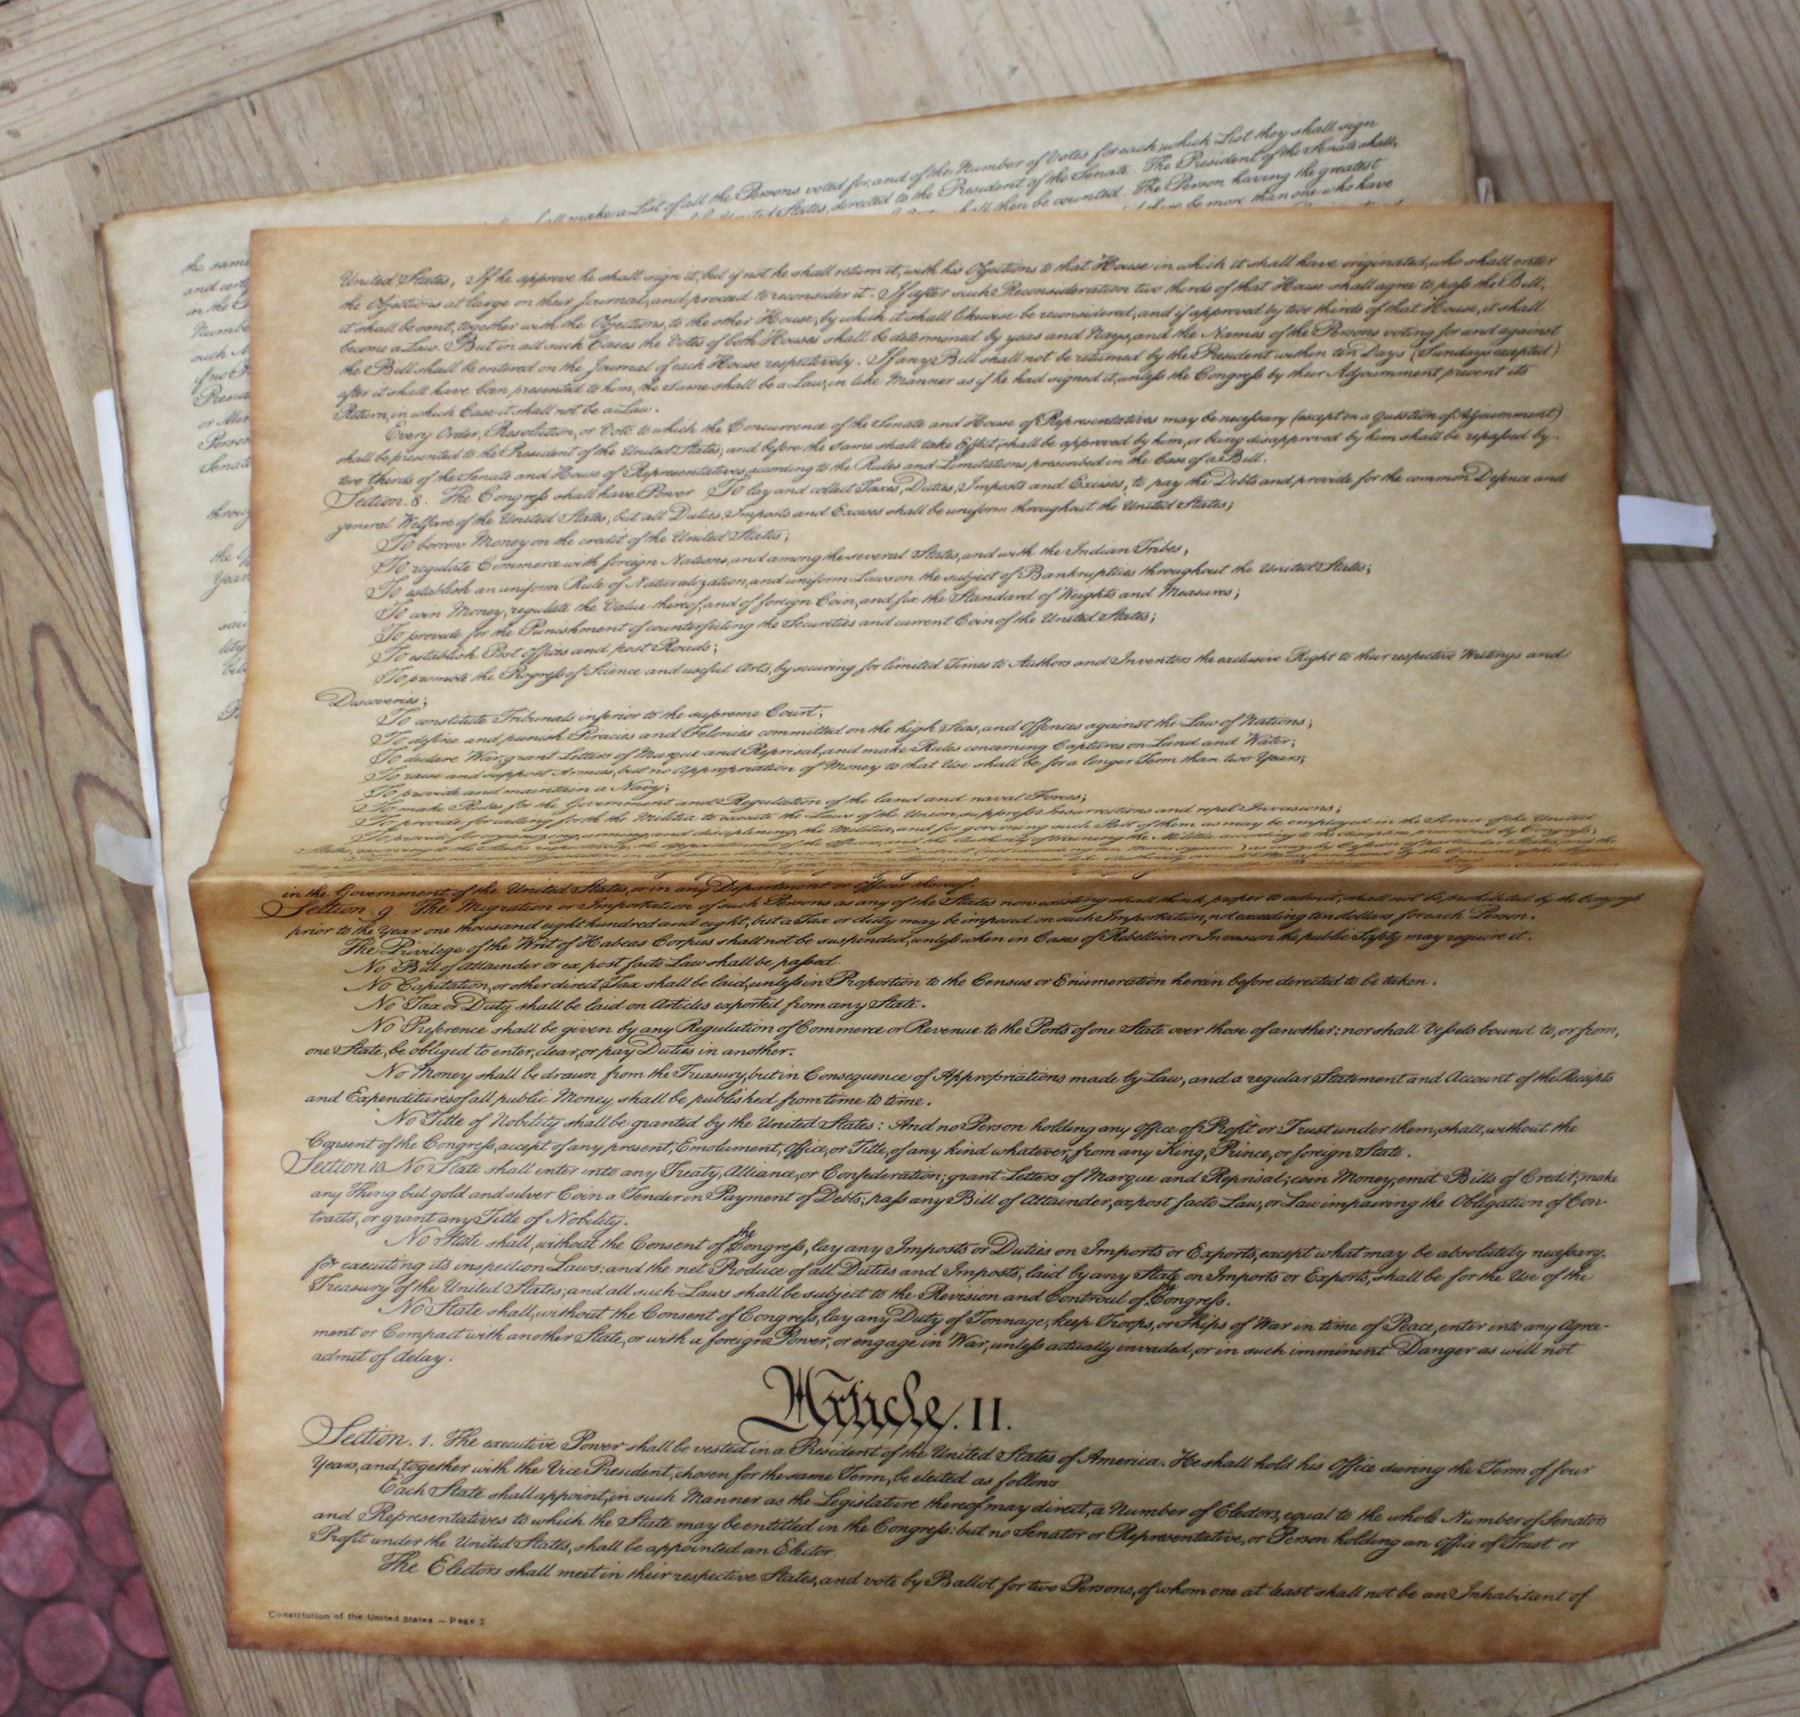 shall make a List of all the Persons voted for, and of the Number of Votes for each; which List they shall sign
United States, directed to the President of the Senate. The President of the Senate shall,
shall then be counted. The Person having the greatest
be more than one who have
the same
and cert
in the
Numbe
such
if no
Presid
or
Person
Senat
throug
the
Years
United States; If he approve he shall sign it, but if not he shall return it, with his Objections to that House in which it shall have originated, who shall enter
the Objections at large on their Journal, and proceed to reconsider it. If after such Reconsideration two thirds of that House shall agree to pass the Bill,
it shall be sent, together with the Objections, to the other House, by which it shall likewise be reconsidered, and if approved by two thirds of that House, it shall
become a Law. But in all such Cases the Votes of both Houses shall be determined by yeas and Nays, and the Names of the Persons voting for and against
the Bill shall be entered on the Journal of each House respectively. If any Bill shall not be returned by the President within ten Days (Sundays excepted)
after it shall have been presented to him, the Same shall be a Law, in like Manner as if he had signed it, unless the Congress by their Adjournment prevent its
Return, in which Case it shall not be a Law.
Every Order, Resolution, or Vote to which the Concurrence of the Senate and House of Representatives may be necessary (except on a question of Adjournment)
shall be presented to the President of the United States; and before the Same shall take Effect, shall be approved by him, or being disapproved by him shall be repassed by
two thirds of the Senate and House of Representatives, according to the Rules and Limitations prescribed in the Case of a Bill.
Section. 8. The Congress shall have Power To lay and collect Taxes, Duties, Imposts and Excises, to pay the Debts and provide for the common Defence and
general Welfare of the United States; but all Duties, Imposts and Excises shall be uniform throughout the United States;
To borrow Money on the credit of the United States;
To regulate Commerce with foreign Nations, and among the several States, and with the Indian Tribes;
To establish an uniform Rule of Naturalization, and uniform Laws on the subject of Bankruptcies throughout the United States;
To coin Money, regulate the Value thereof, and of foreign Coin, and fix the Standard of Weights and Measures;
To provide for the Punishment of counterfeiting the Securities and current Coin of the United States;
To establish Post Offices and post Roads;
To promote the Progress of Science and useful Arts, by securing for limited Times to Authors and Inventors the exclusive Right to their respective Writings and
Discoveries;
To constitute Tribunals inferior to the supreme Court;
To define and punish Piracies and Felonies committed on the high Seas, and Offences against the Law of Nations;
To declare War, grant Letters of Marque and Reprisal, and make Rules concerning Captures on Land and Water;
To raise and support Armies, but no Appropriation of Money to that Use shall be for a longer Term than two Years;
To provide and maintain a Navy;
To make Rules for the Government and Regulation of the land and naval Forces;
To provide for calling forth the Militia to execute the Laws of the Union, suppress Insurrections and repel Invasions;
To provide for organizing, arming, and disciplining, the Militia, and for governing such Part of them as may be employed in the Service of the United
States, reserving to the States respectively, the Appointment of the Officers, and the Authority of training the Militia according to the discipline prescribed by Congress;
in the Government of the United States, or in any Department or Officer thereof.
Section 9. The Migration or Importation of such Persons as any of the States now existing shall think proper to admit, shall not be prohibited by the Congress
prior to the Year one thousand eight hundred and eight, but a Tax or duty may be imposed on such Importation, not exceeding ten dollars for each Person.
The Privilege of the Writ of Habeas Corpus shall not be suspended, unless when in Cases of Rebellion or Invasion the public Safety may require it.
No Bill of Attainder or ex post facto Law shall be passed.
No Capitation, or other direct, Tax shall be laid, unless in Proportion to the Census or Enumeration herein before directed to be taken.
No Tax or Duty shall be laid on Articles exported from any State.
No Preference shall be given by any Regulation of Commerce or Revenue to the Ports of one State over those of another: nor shall Vessels bound to, or from,
one State, be obliged to enter, clear, or pay Duties in another.
No Money shall be drawn from the Treasury, but in Consequence of Appropriations made by Law; and a regular Statement and Account of the Receipts
and Expenditures of all public Money shall be published from time to time.
No Title of Nobility shall be granted by the United States: And no Person holding any Office of Profit or Trust under them, shall, without the
Consent of the Congress, accept of any present, Emolument, Office, or Title, of any kind whatever, from any King, Prince, or foreign State.
Section 10. No State shall enter into any Treaty, Alliance, or Confederation; grant Letters of Marque and Reprisal; coin Money; emit Bills of Credit; make
any Thing but gold and silver Coin a Tender in Payment of Debts; pass any Bill of Attainder, ex post facto Law, or Law impairing the Obligation of Con-
tracts, or grant any Title of Nobility.
No State shall, without the Consent of the Congress, lay any Imposts or Duties on Imports or Exports, except what may be absolutely necessary
for executing its inspection Laws: and the net Produce of all Duties and Imposts, laid by any State on Imports or Exports, shall be for the Use of the
Treasury of the United States; and all such Laws shall be subject to the Revision and Controul of Congress.
No State shall, without the Consent of Congress, lay any Duty of Tonnage, keep Troops, or Ships of War in time of Peace, enter into any Agree-
ment or Compact with another State, or with a foreign Power, or engage in War, unless actually invaded, or in such imminent Danger as will not
admit of delay.
Article. II.
Section. 1. The executive Power shall be vested in a President of the United States of America. He shall hold his Office during the Term of four
Years, and, together with the Vice President, chosen for the same Term, be elected as follows
Each State shall appoint, in such Manner as the Legislature thereof may direct, a Number of Electors, equal to the whole Number of Senators
and Representatives to which the State may be entitled in the Congress: but no Senator or Representative, or Person holding an Office of Trust or
Profit under the United States, shall be appointed an Elector.
The Electors shall meet in their respective States, and vote by Ballot for two Persons, of whom one at least shall not be an Inhabitant of
Constitution of the United States — Page 2